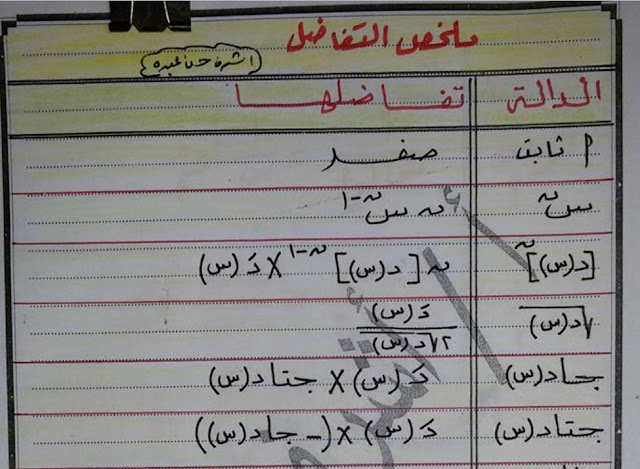 ملخص التفاضل
اشرف حسن عبده
الدالة تفاضلها
P ثابت صفر
س^ن ن س^(ن-1)
[د(س)]^ن ن [د(س)]^(ن-1) × دَ(س)
√د(س) دَ(س) / ٢√د(س)
جاد(س) دَ(س) × جتاد(س)
جتاد(س) دَ(س) × (- جاد(س))